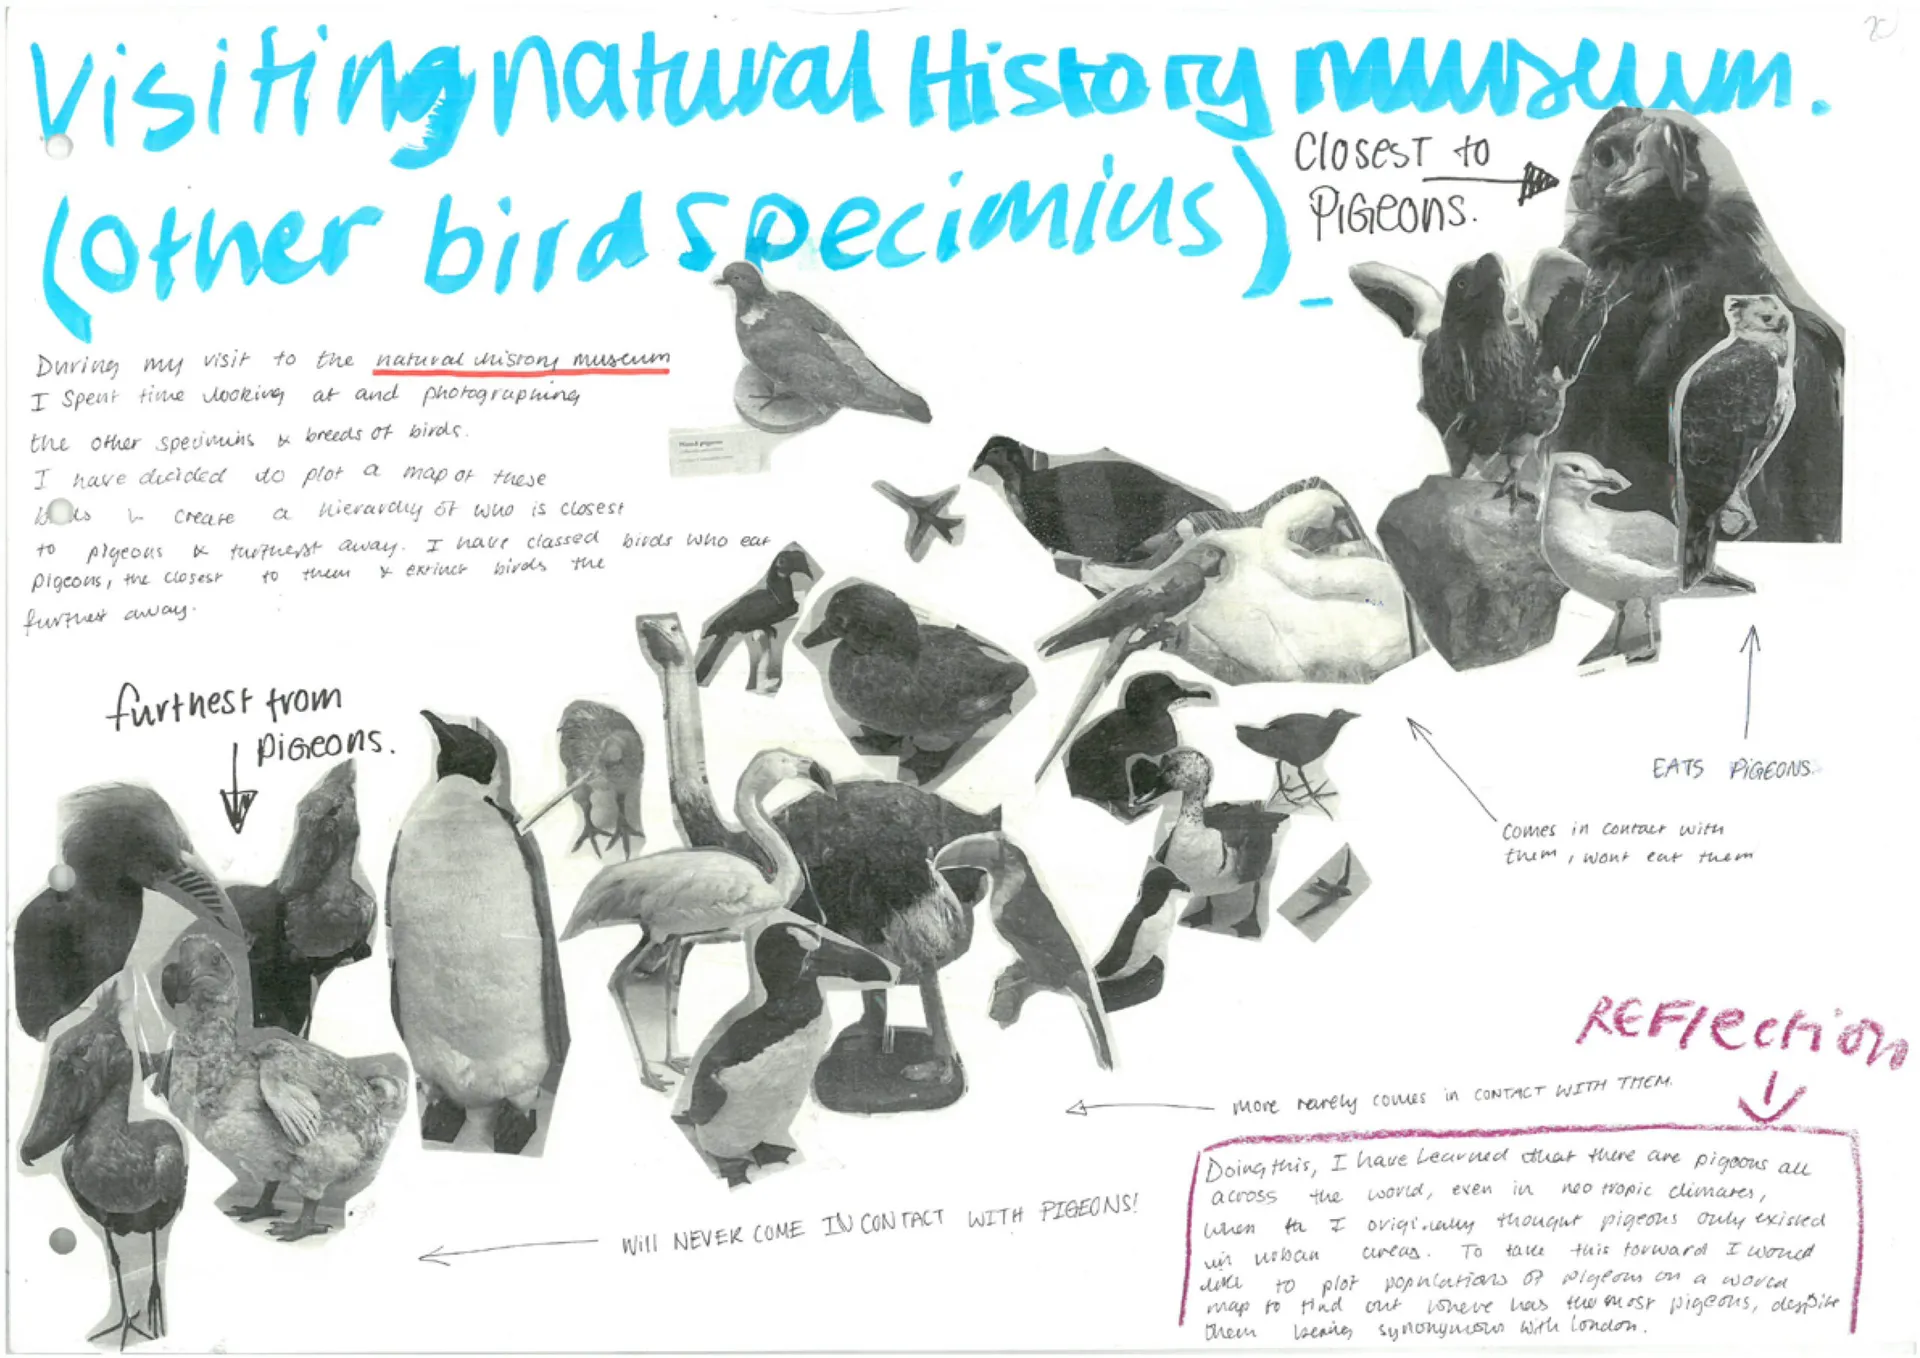 Visiting natural History museum.
(Other bird specimius)
Closest to
PIGEONS.
During my visit to the natural history museum
I spent time looking at and photographing
the other specimins & breeds of birds.
I have decided to plot a map of these
& create a hierarchy of who is closest
to pigeons & furthest away. I have classed birds who eat
pigeons, the closest to them & extinct birds the
furthest away.
Wood pigeon
furthest from
PIGEONS.
EATS PIGEONS.
Comes in contact with
them, wont eat them
more rarely comes in CONTACT WITH THEM.
Will NEVER COME IN CONTACT WITH PIGEONS!
REFlection
Doing this, I have learned that there are pigeons all
across the world, even in neo tropic climates,
when I originally thought pigeons only existed
in urban areas. To take this forward I would
like to plot populations of pigeons on a world
map to find out where has the most pigeons, despite
them being synonymous with london.